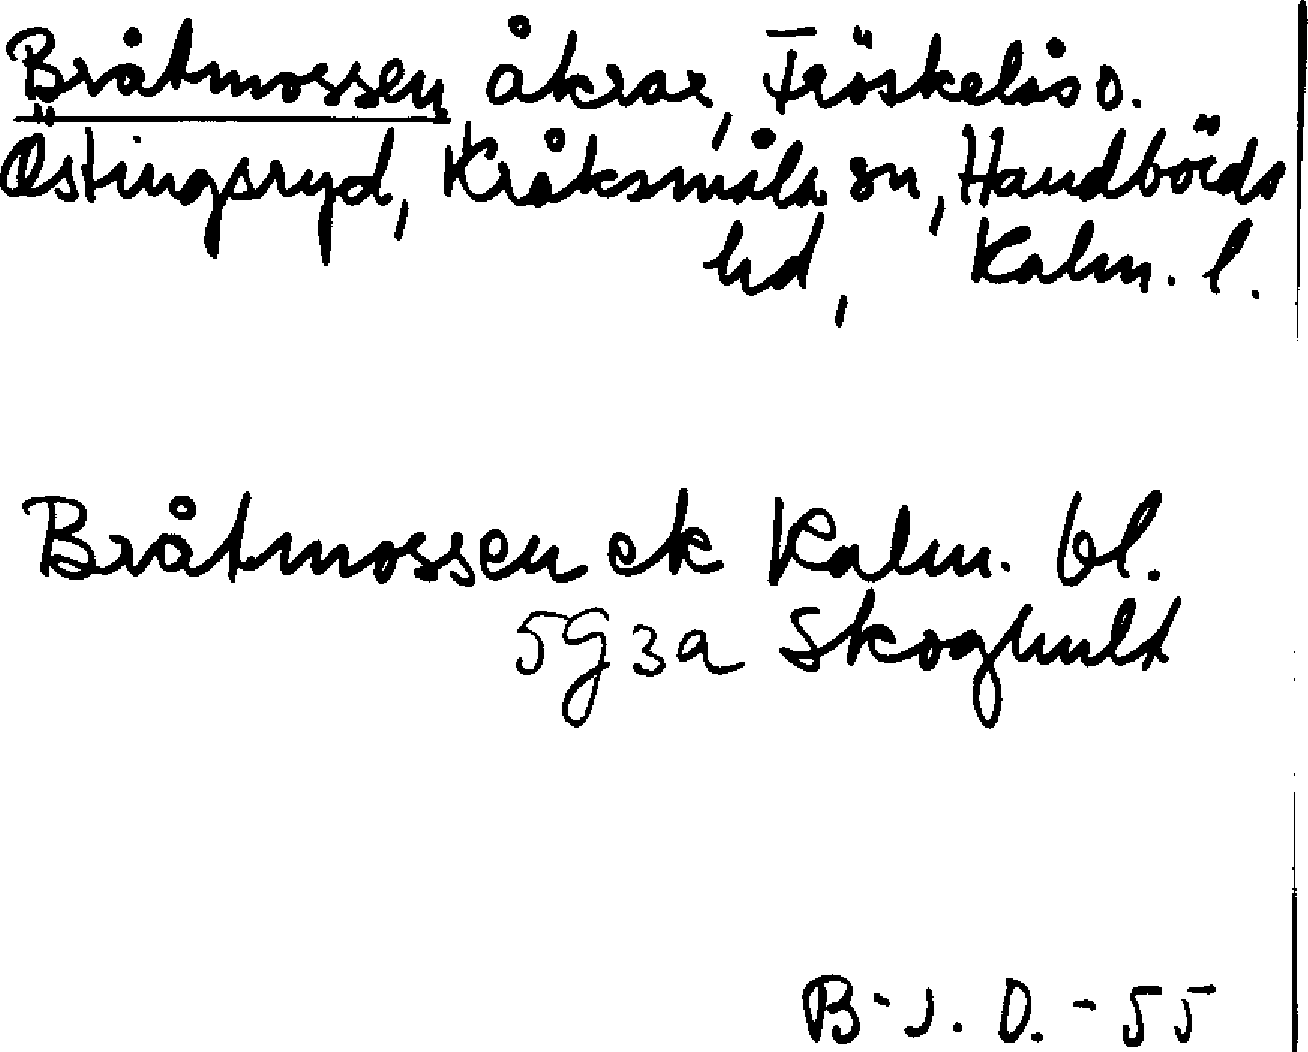 Bråtmossen åkrar, Fröskelås o.
Östingsryd, Kråksmåla sn, Handbörds
hd, Kalm. l.
Bråtmossen ek Kalm. bl.
5G3a Skoghult
B-J. D. - 55